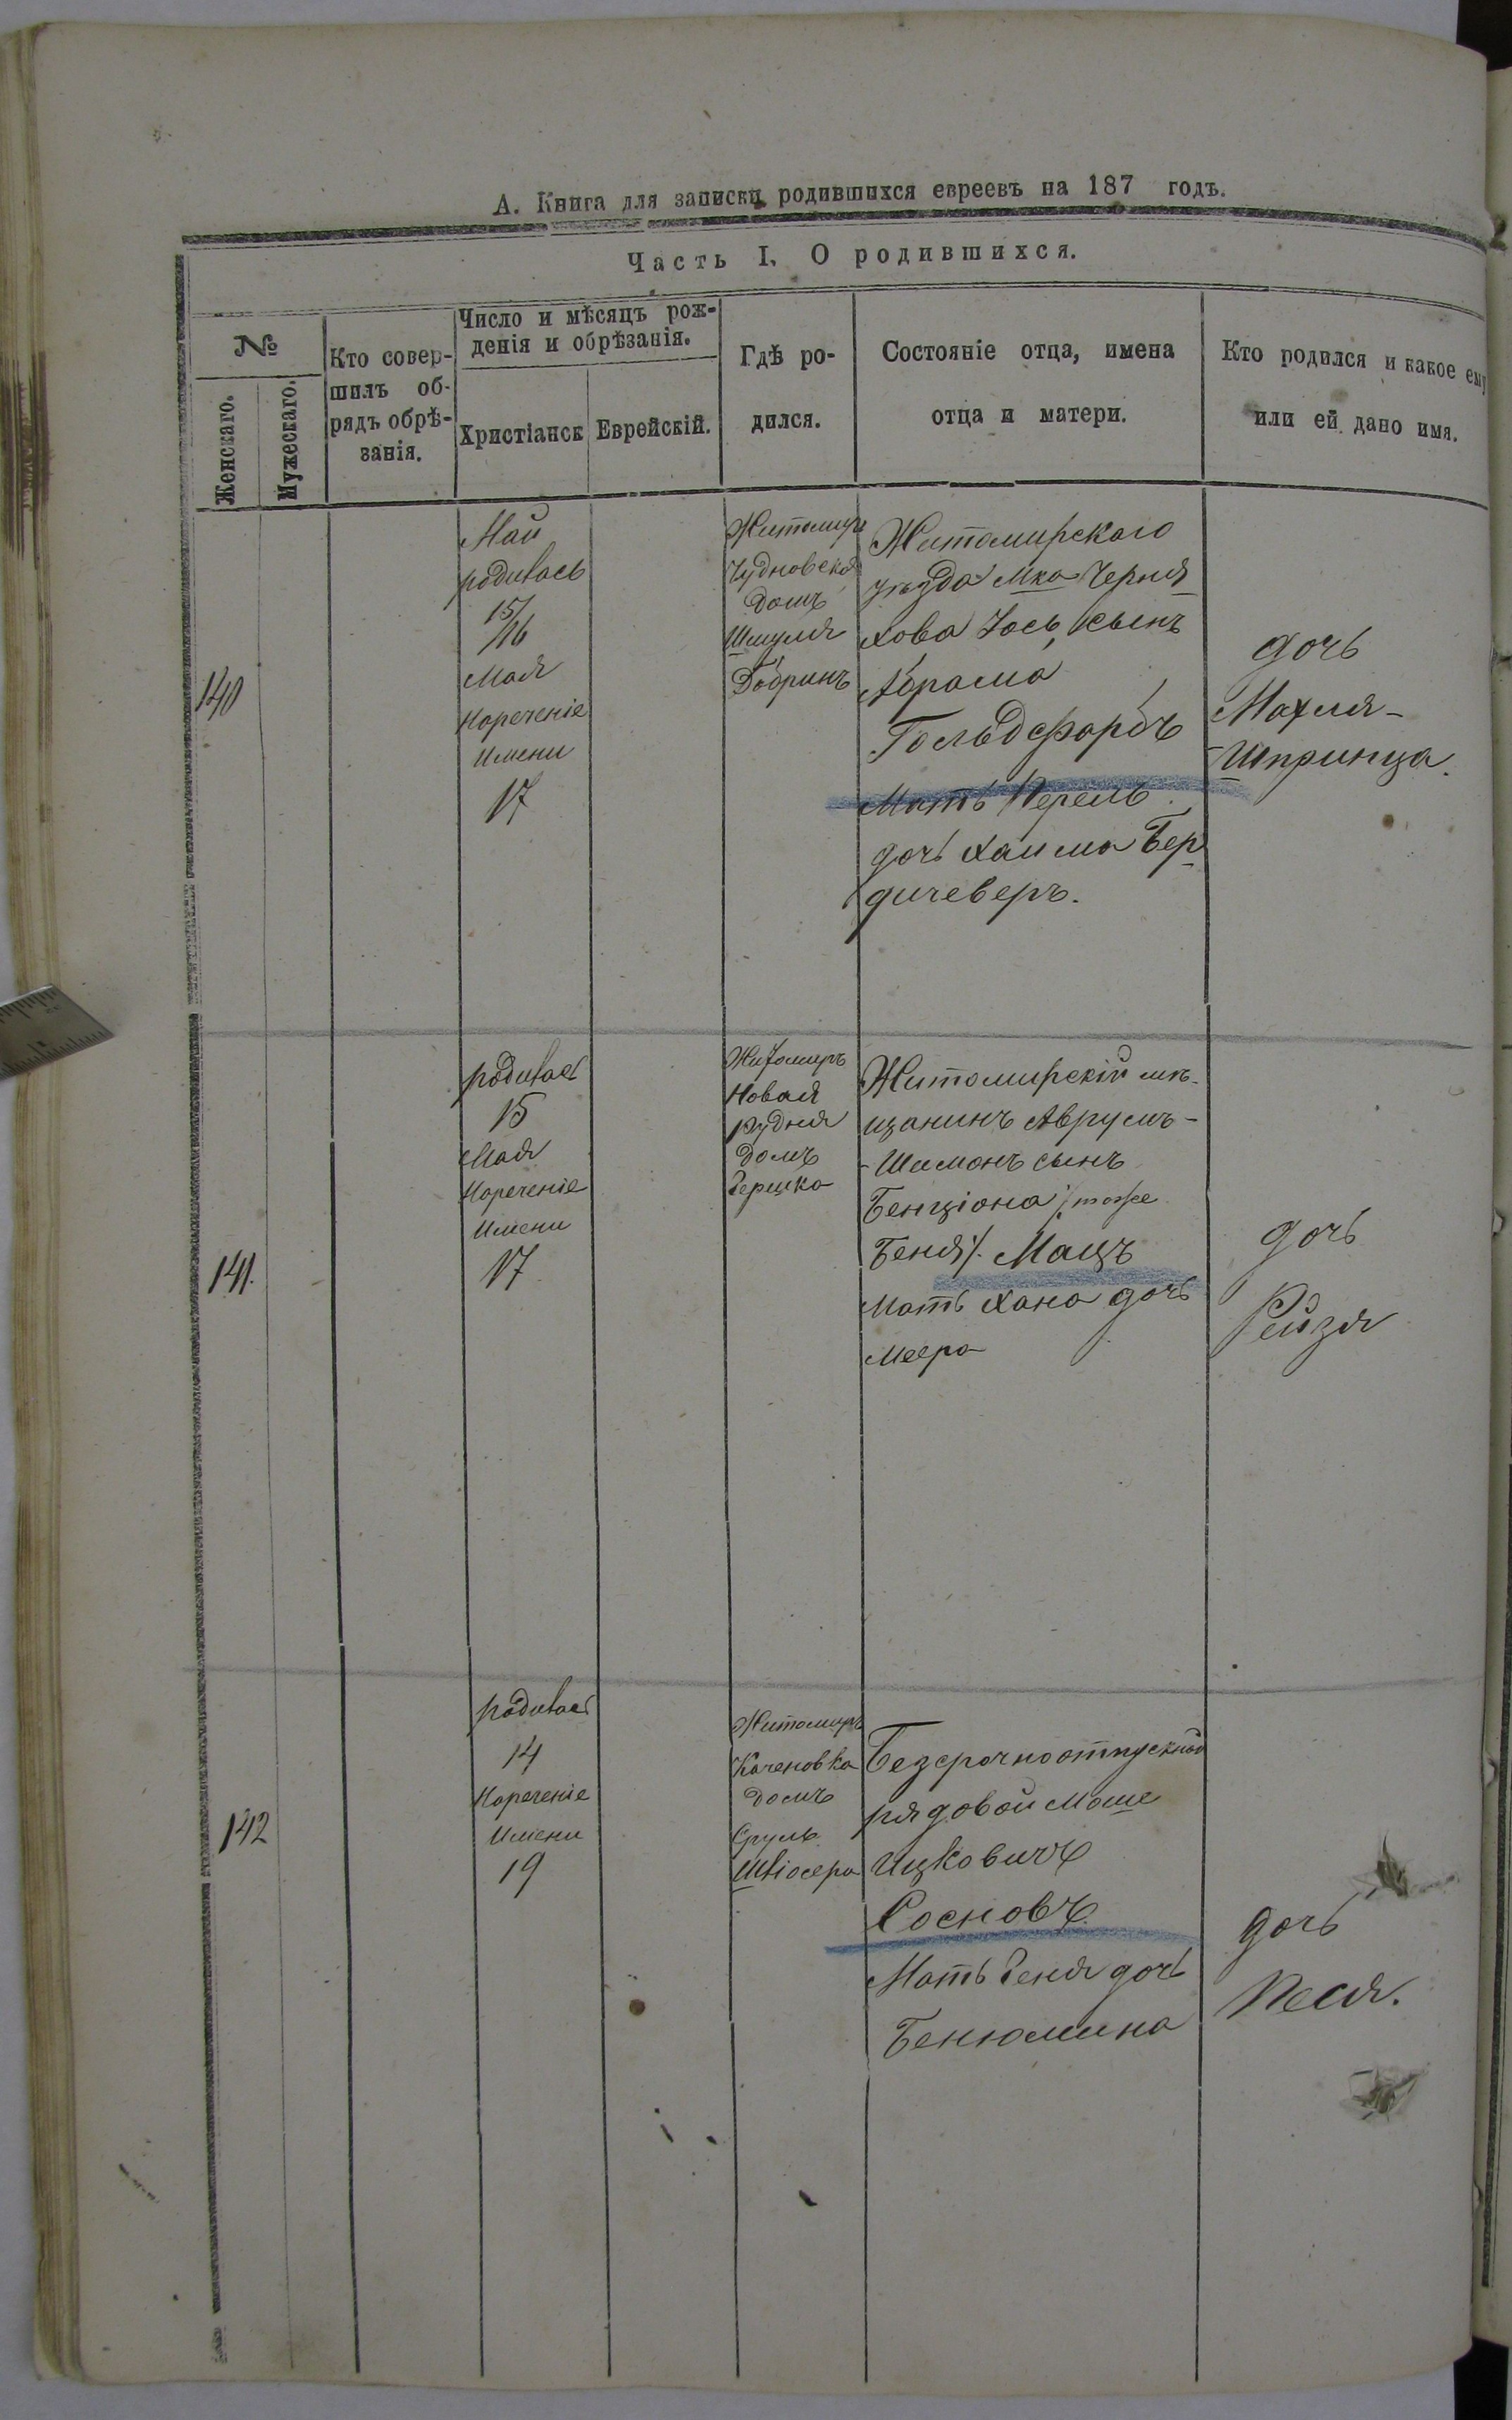 А. Книга для записки родившихся евреевъ на 187 годъ.
Часть I. О родившихся.
№
Женскаго.
Мужескаго.
Кто совер-
шилъ об-
рядъ обрѣ-
занія.
Число и мѣсяцъ рож-
денія и обрѣзанія.
Христіанск
Еврейскій.
Гдѣ ро-
дился.
Состояніе отца, имена
отца и матери.
Кто родился и какое ему
или ей дано имя.
140
Май
родилась
15/16
Мая
Нареченіе
Имени
17
Житомиръ
Чудновска
домъ
Шмуля
Добринъ
Житомирскаго
уѣзда Мка Черня
хова Іось сынъ
Абрама
Гольдфарбъ
Мать Перель
дочь Хаима Бер
дичеверъ.
дочь
Махля-
-Шпринца.
141.
родилась
15
Мая
Нареченіе
Имени
17
Житомиръ
Новая
Рудня
домъ
Гершка
Житомирскій мѣ-
щанинъ Аврумъ-
-Шимонъ сынъ
Бенціона /:тоже
Беня:/. Мацъ
Мать Хана дочь
Меера
дочь
Рейзя
142
родилась
14
Нареченіе
Имени
19
Житомиръ
Каченовка
домъ
Сруль
Безсрочноотпускной
рядовой Моше
Ицковичъ
Сосновъ.
Мать Геня дочь
Бенюмина
дочь
Песя.